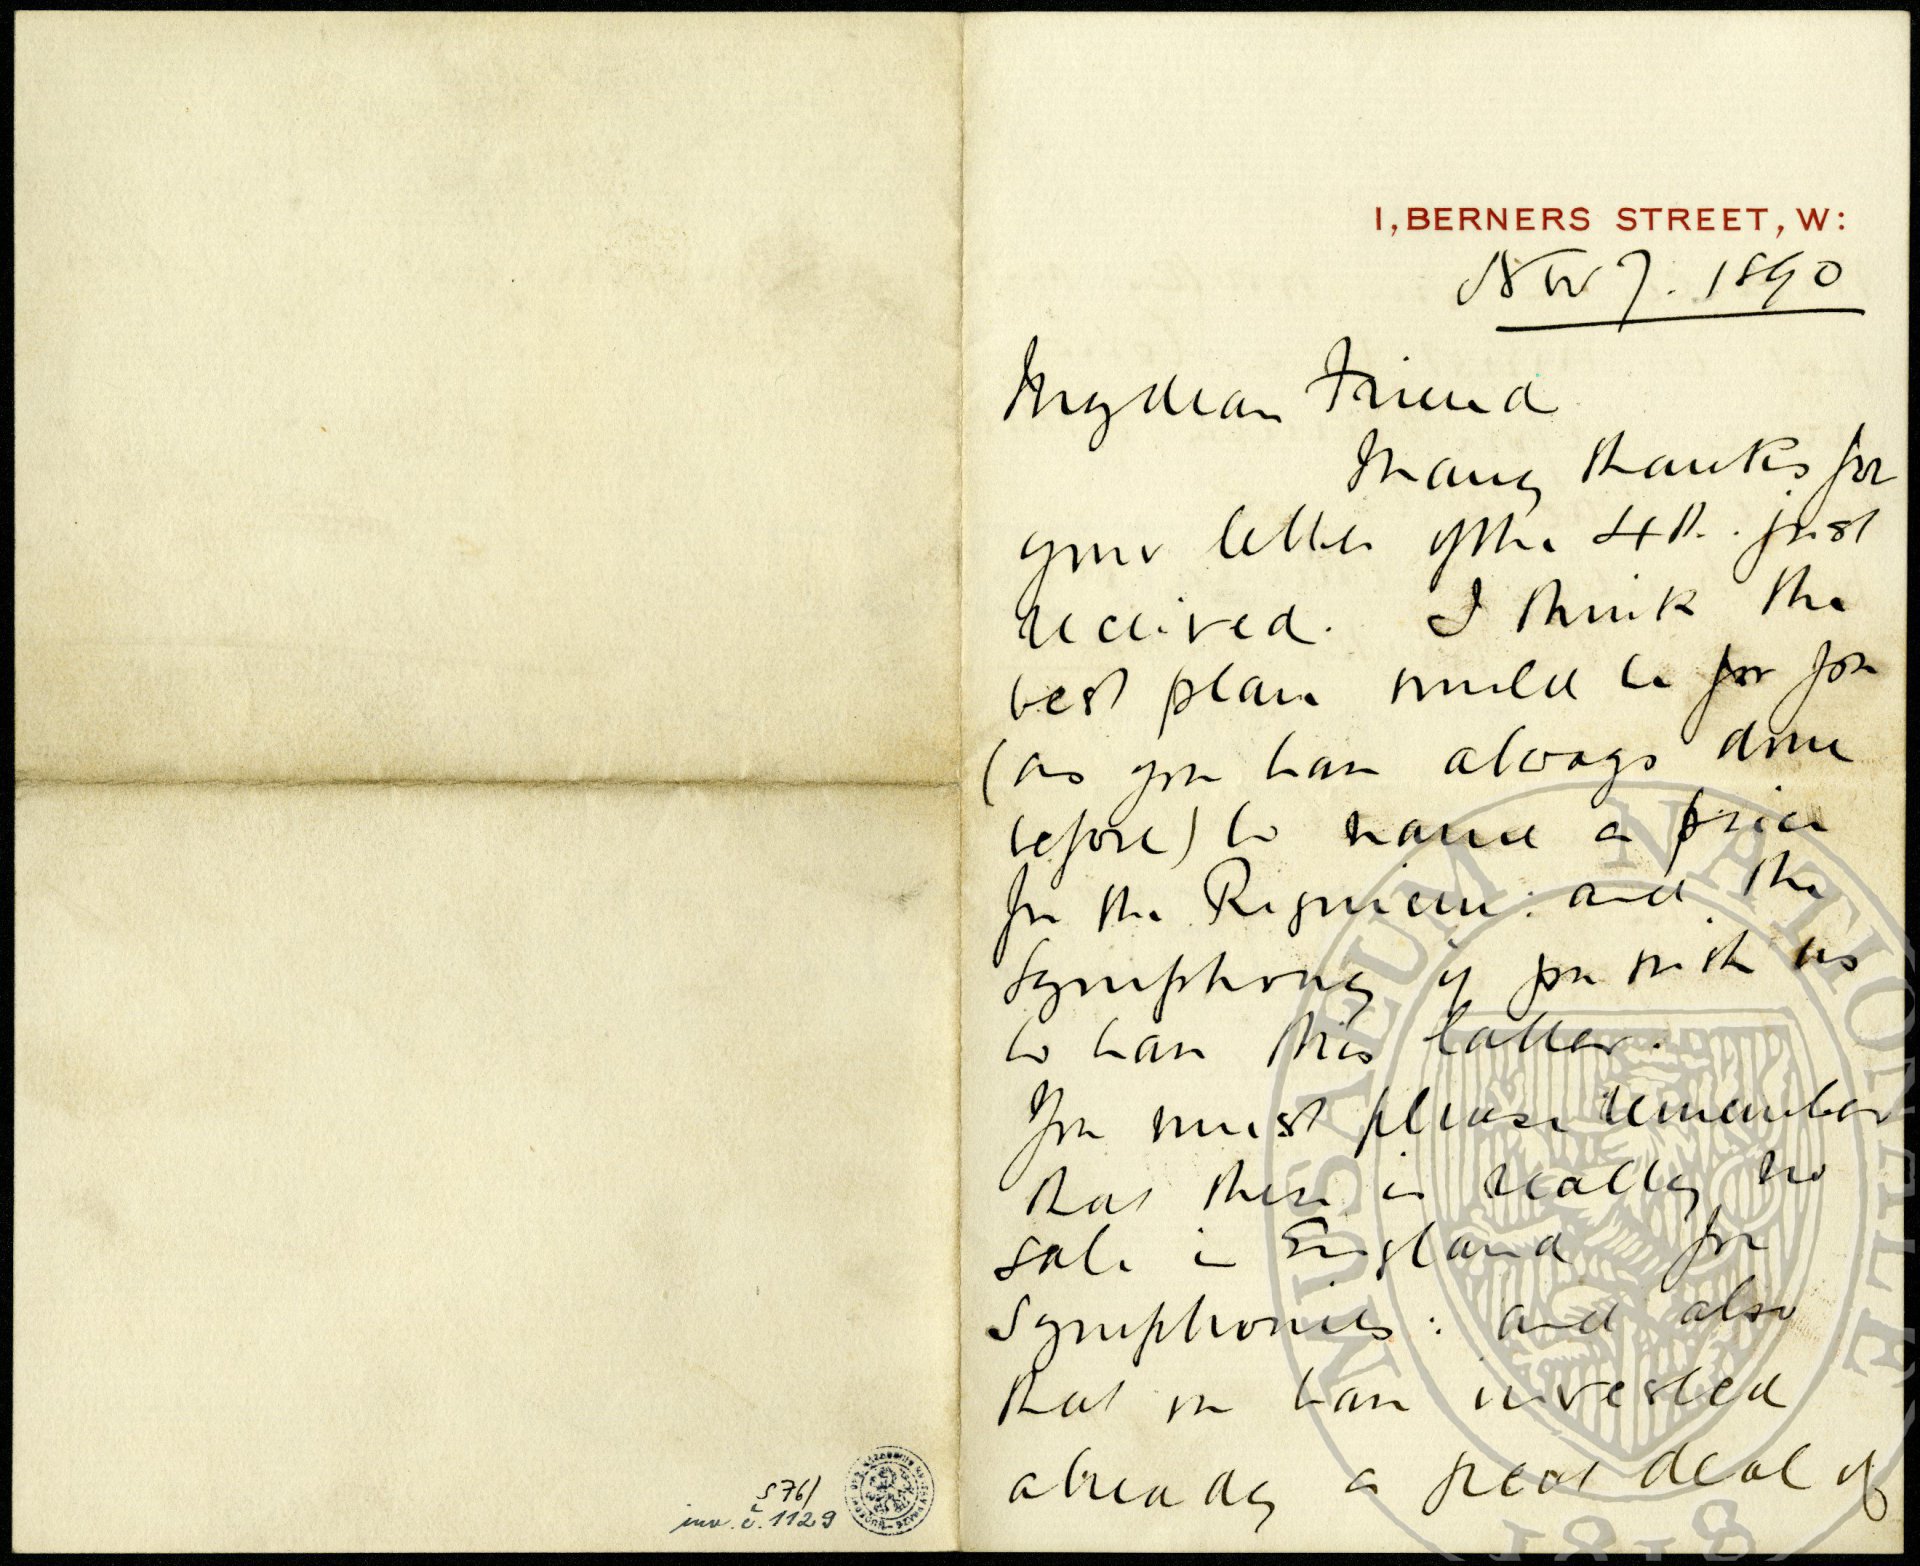 1, BERNERS STREET, W:
Nov 7. 1890
My dear Friend
Many thanks for
your letter of the 4th. just
received. I think the
best plan would be for you
(as you have always done
before) to name a price
for the Requiem: and the
Symphony if you wish us
to have this latter.
You must please remember
that there is really no
sale in England for
Symphonies: and also
that we have invested
already a great deal of
S 76/
inv. č. 1129
MUSAEUM NATIONALE
1818